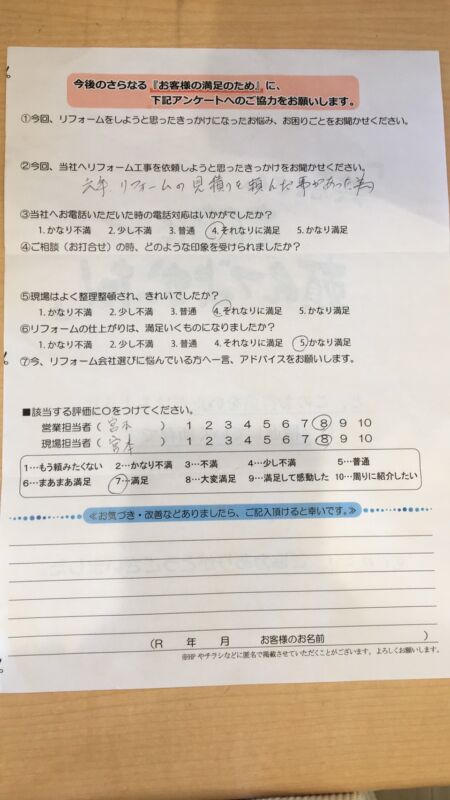 今後のさらなる『お客様の満足のため』に、
下記アンケートへのご協力をお願いします。
①今回、リフォームをしようと思ったきっかけになったお悩み、お困りごとをお聞かせください。
②今回、当社へリフォーム工事を依頼しようと思ったきっかけをお聞かせください。
リフォームの見積りを頼んだ事があった為
③当社へお電話いただいた時の電話対応はいかがでしたか？
1.かなり不満 2.少し不満 3.普通 4.それなりに満足 5.かなり満足
④ご相談（お打合せ）の時、どのような印象を受けられましたか？
⑤現場はよく整理整頓され、きれいでしたか？
1.かなり不満 2.少し不満 3.普通 4.それなりに満足 5.かなり満足
⑥リフォームの仕上がりは、満足いくものになりましたか？
1.かなり不満 2.少し不満 3.普通 4.それなりに満足 5.かなり満足
⑦今、リフォーム会社選びに悩んでいる方へ一言、アドバイスをお願いします。
■該当する評価に○をつけてください。
営業担当者（宮本） 1 2 3 4 5 6 7 8 9 10
現場担当者（宮本） 1 2 3 4 5 6 7 8 9 10
1…もう頼みたくない 2…かなり不満 3…不満 4…少し不満 5…普通
6…まあまあ満足 7…満足 8…大変満足 9…満足して感動した 10…周りに紹介したい
≪お気づき・改善などありましたら、ご記入頂けると幸いです。≫
（R 年 月 お客様のお名前 ）
※HPやチラシなどに匿名で掲載させていただくことがございます。よろしくお願いします。